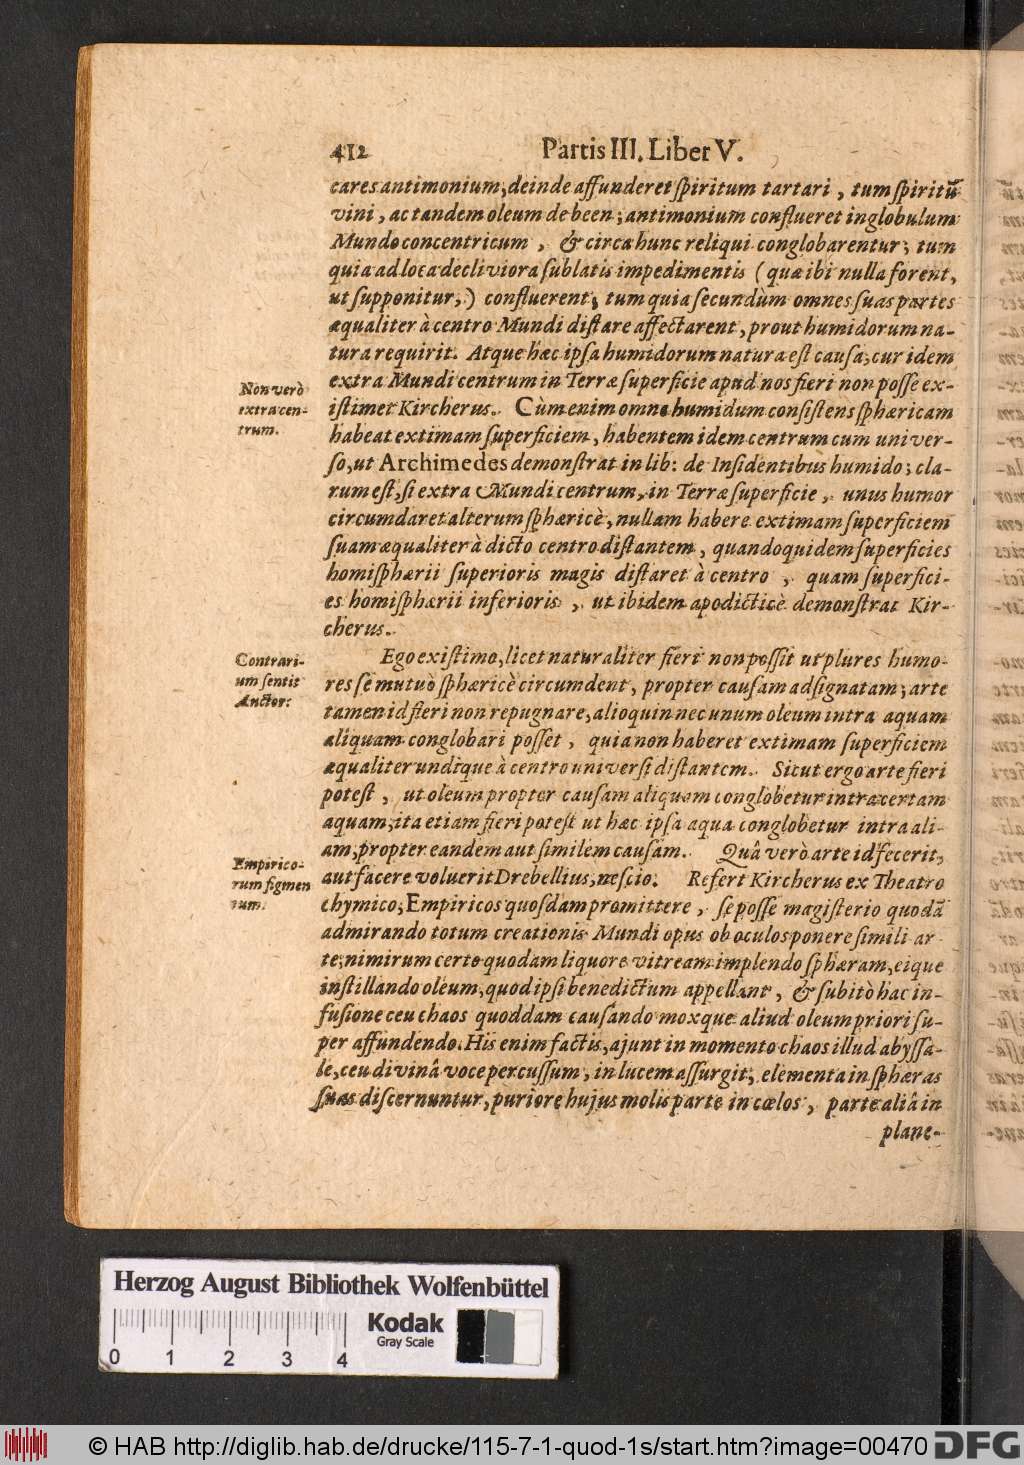 412 Partis III. Liber V.
cares antimonium, deinde affunderet spiritum tartari, tum spiritũ
vini, ac tandem oleum de been; antimonium conflueret in globulum
Mundo concentricum, & circa hunc reliqui conglobarentur; tum
quia ad loca decliviora sublatis impedimentis (quæ ibi nulla forent,
ut supponitur,) confluerent, tum quia secundùm omnes suas partes
æqualiter à centro Mundi distare affectarent, prout humidorum na-
tura requirit. Atque hæc ipsa humidorum natura est causa, cur idem
Non verò
extra cen-
trum.
extra Mundi centrum in Terræ superficie apud nos fieri non posse ex-
istimet Kircherus. Cùm enim omne humidum consistens sphæricam
habeat extimam superficiem, habentem idem centrum cum univer-
so, ut Archimedes demonstrat in lib: de Insidentibus humido; cla-
rum est, si extra Mundi centrum, in Terræ superficie, unus humor
circumdaret alterum sphæricè, nullam habere extimam superficiem
suam æqualiter à dicto centro distantem, quandoquidem superficies
homisphærii superioris magis distaret à centro, quam superfici-
es homisphærii inferioris, ut ibidem apodicticè demonstrat Kir-
cherus.
Contrari-
um sentit
Auctor:
Ego existimo, licet naturaliter fieri non possit ut plures humo-
res se mutuò sphæricè circumdent, propter causam adsignatam; arte
tamen id fieri non repugnare, alioquin nec unum oleum intra aquam
aliquam conglobari posset, quia non haberet extimam superficiem
æqualiter undique à centro universi distantem. Sicut ergo arte fieri
potest, ut oleum propter causam aliquam conglobetur intra certam
aquam, ita etiam fieri potest ut hæc ipsa aqua conglobetur intra ali-
am, propter eandem aut similem causam. Quâ verò arte id fecerit,
Empirico-
rum figmen
tum.
aut facere voluerit Drebellius, nescio. Refert Kircherus ex Theatro
chymico, Empiricos quosdam promittere, se posse magisterio quodã
admirando totum creationis Mundi opus ob oculos ponere simili ar
te, nimirum certo quodam liquore vitream implendo sphæram, eique
instillando oleum, quod ipsi benedictum appellant, & subitò hac in-
fusione ceu chaos quoddam causando moxque aliud oleum priori su-
per affundendo. His enim factis, ajunt in momento chaos illud abyssa-
le, ceu divinâ voce percussum, in lucem assurgit, elementa in sphæras
suas discernuntur, puriore hujus molis parte in cœlos, parte aliâ in
plane-
Herzog August Bibliothek Wolfenbüttel
0 1 2 3 4
Kodak
Gray Scale
© HAB http://diglib.hab.de/drucke/115-7-1-quod-1s/start.htm?image=00470 DFG